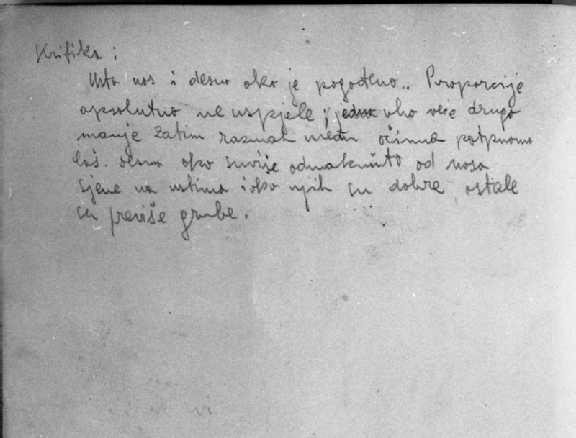 Kritika:
Usta nos i desno oko je pogođeno.. Proporcije
apsolutno ne uspjele, jedno uho veće drugo
manje zatim razmak među očima potpuno
loš. desno oko suviše odmaknuto od nosa
Sjene na ustima i oko njih su dobre, ostale
su previše grube.